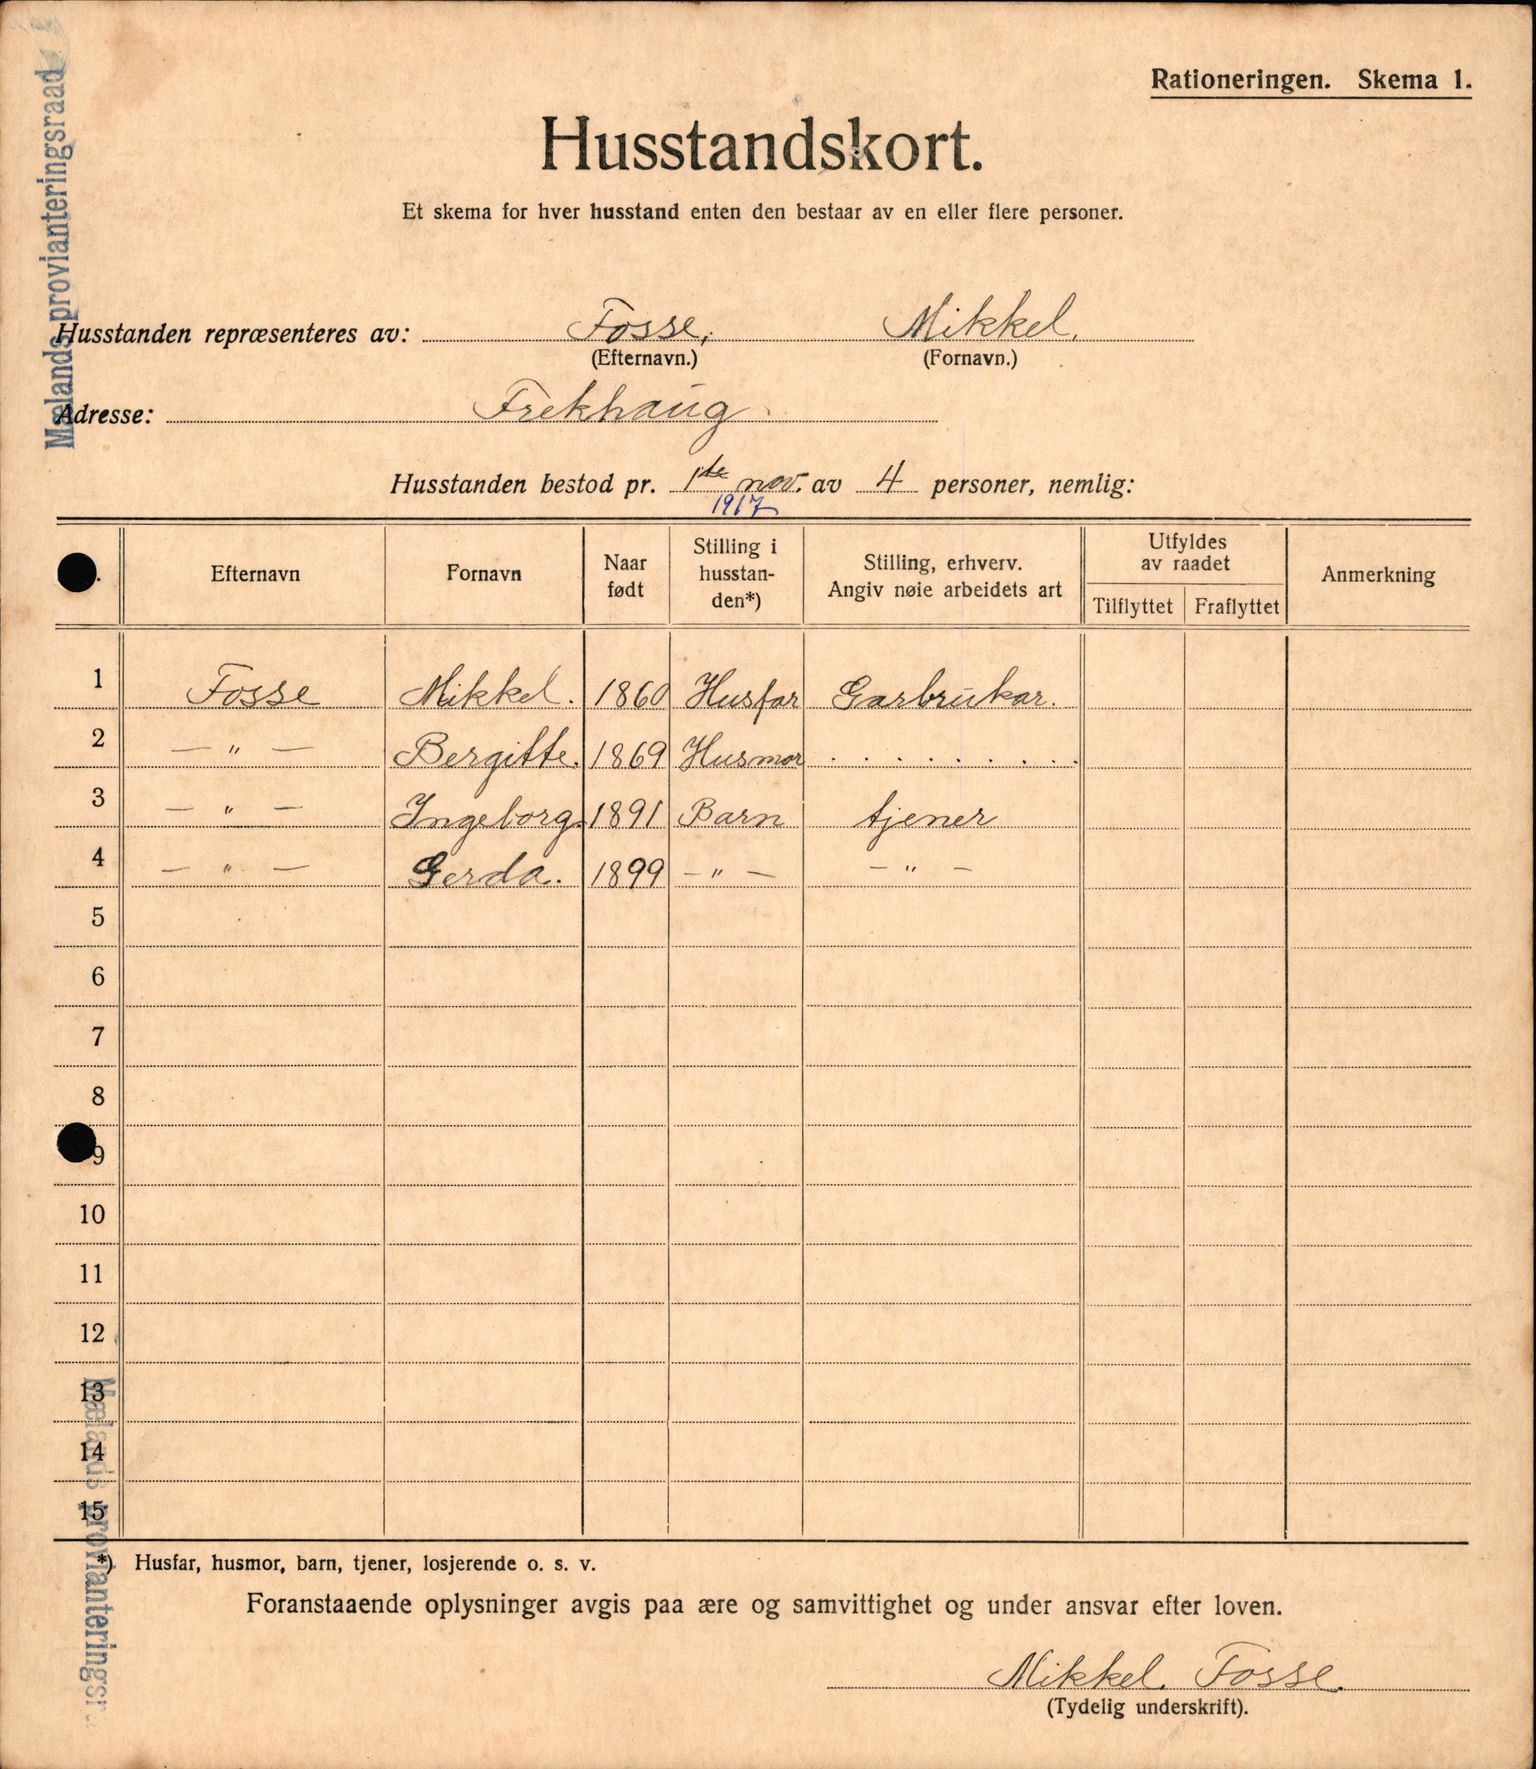 Mælands provianteringsraad
Rationeringen. Skema 1.
Husstandskort.
Et skema for hver husstand enten den bestaar av en eller flere personer.
Husstanden repræsenteres av: Fosse, Mikkel.
(Efternavn.) (Fornavn.)
Adresse: Frekhaug.
Husstanden bestod pr. 1ste nov. av 4 personer, nemlig:
1917
Efternavn Fornavn Naar født Stilling i husstanden*) Stilling, erhverv. Angiv nøie arbeidets art Utfyldes av raadet Tilflyttet Fraflyttet Anmerkning
1 Fosse Mikkel. 1860 Husfar Garbrukar.
2 — " — Bergitte. 1869 Husmor . . . . . . . . .
3 — " — Ingeborg. 1891 Barn tjener
4 — " — Gerda. 1899 — " — — " —
5
6
7
8
9
10
11
12
13
14
15
*) Husfar, husmor, barn, tjener, losjerende o. s. v.
Foranstaaende oplysninger avgis paa ære og samvittighet og under ansvar efter loven.
Mikkel. Fosse.
(Tydelig underskrift).
Mælands provianteringsr